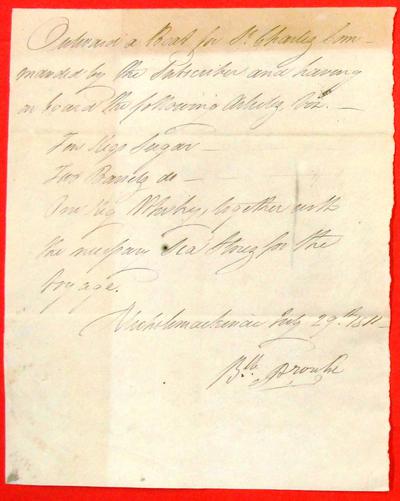 Outward a Boat for St. Charles Com-
manded by the Subscriber and having
on board the following Articles Viz. —
Kegs Sugar —
Two Barrels do —
One Keg Whisky, together with
the necessary Sea Stores for the
Voyage.
Michilimackinac July 29th 1811